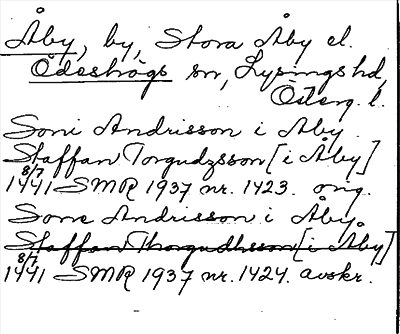 Åby, by, Stora Åby el.
Ödeshögs sn, Lysings hd,
Österg. l.
Soni Andrisson i Åby.
Staffan Torgudzsson [i Åby]
8/7 1441 SMR 1937 nr. 1423. orig.
Sone Andrisson i Åby.
Staffan Thorgudhsson [i Åby]
8/7 1441 SMR 1937 nr. 1424. avskr.